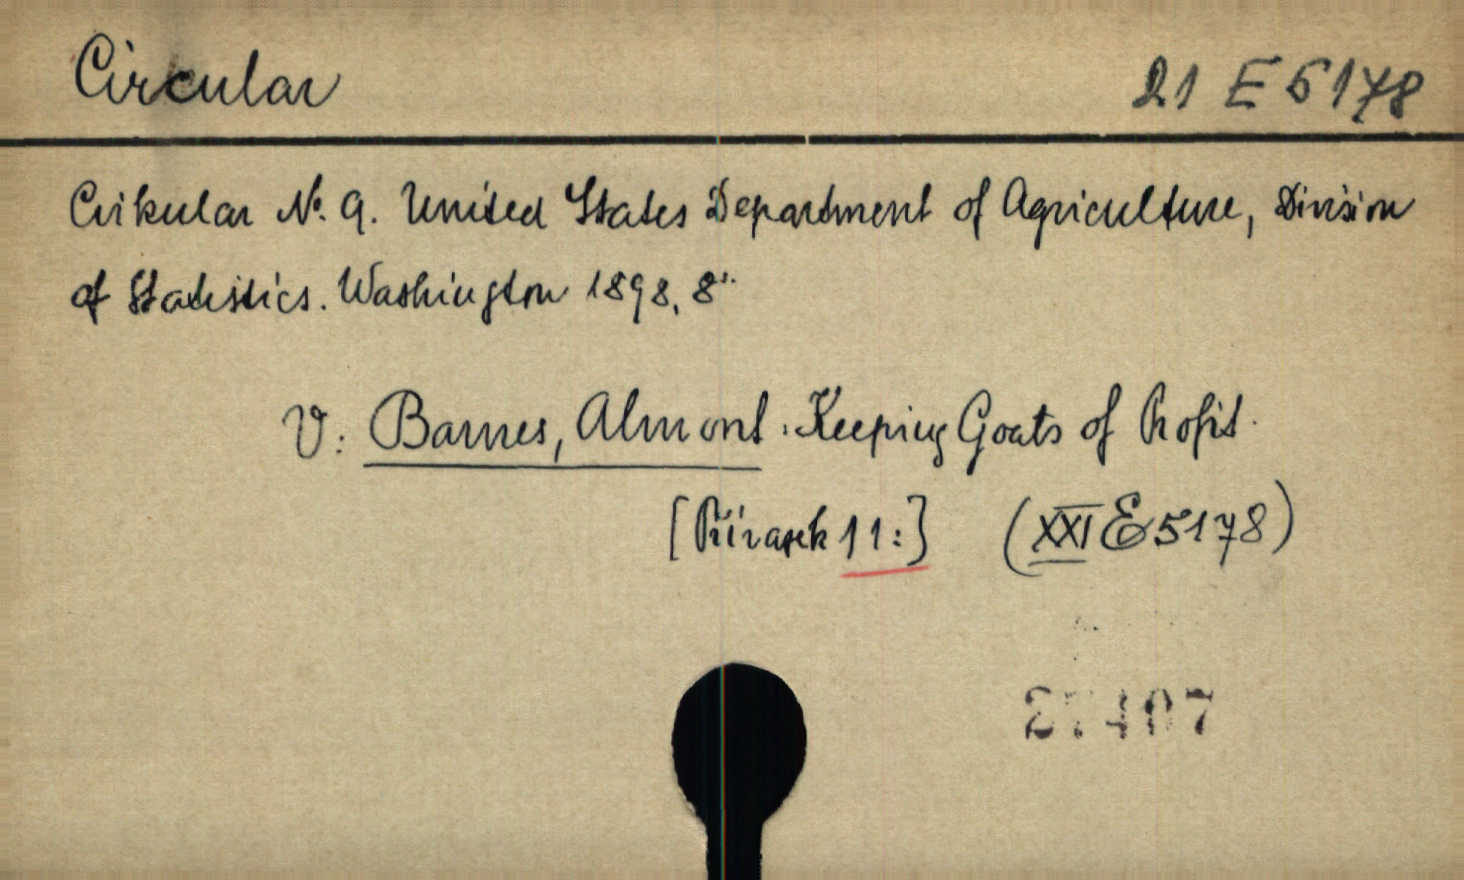 Circular 21 E 5178
Cirkular No. 9. United States Department of Agriculture, Division
of Statistics. Washington 1898, 8°.
V: Barnes, Almont: Keeping Goats of Profit.
[Přívazek 11:] (XXI E 5178)